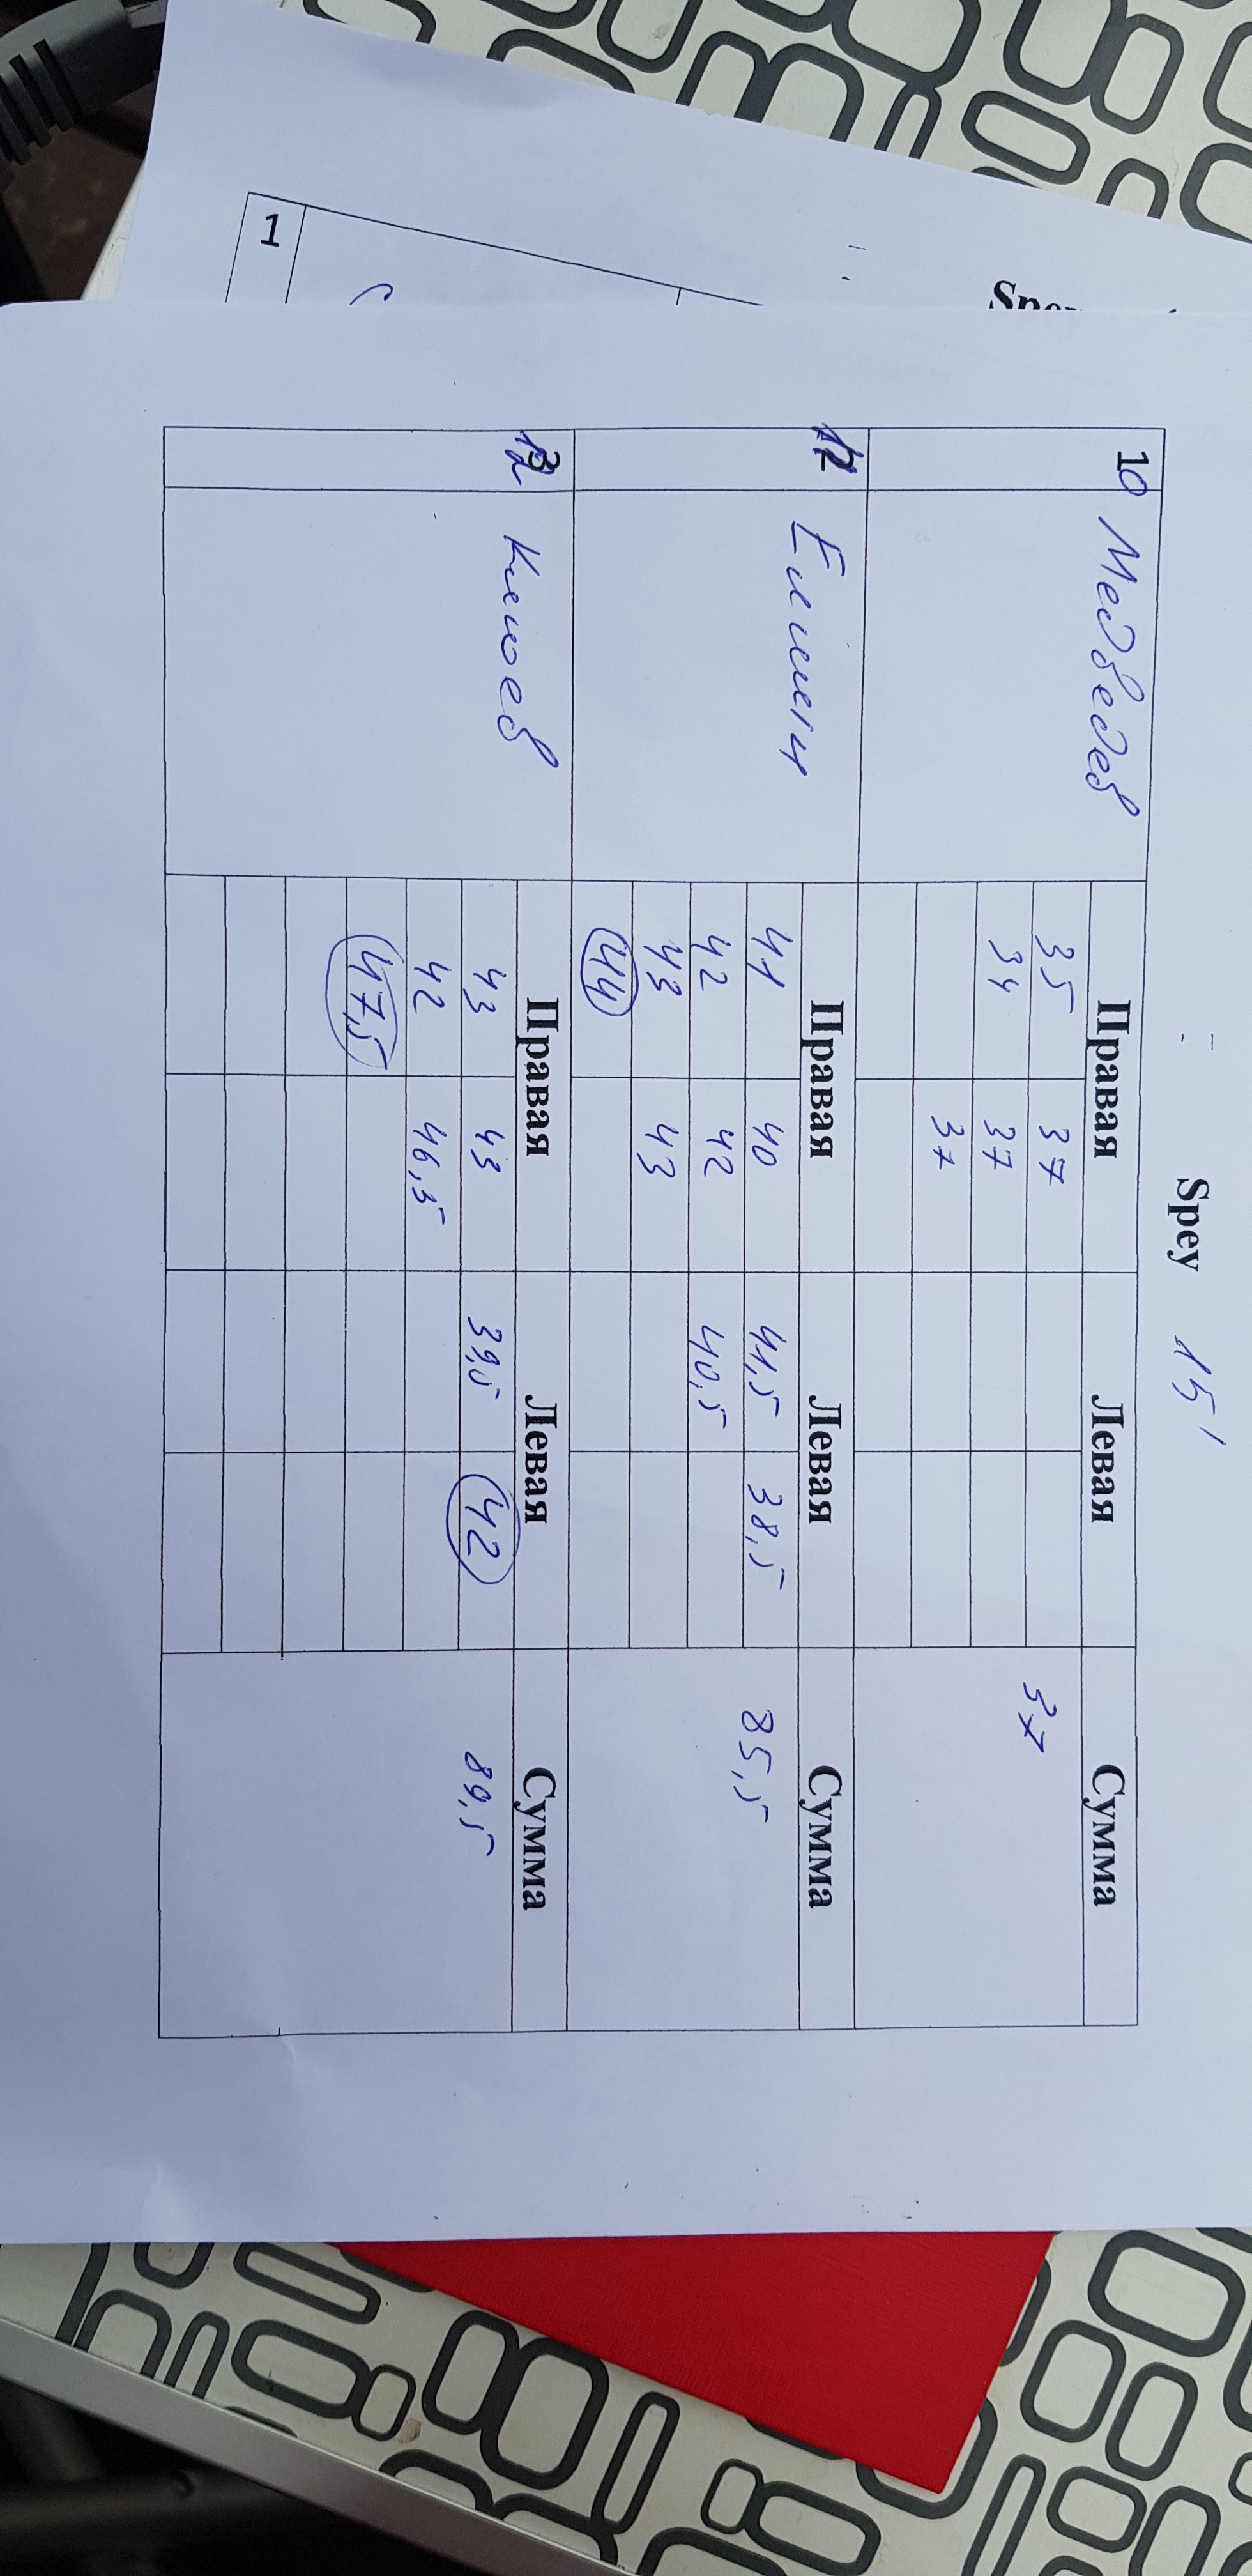 Spey 15'
10 Медведев Правая Левая Сумма
35 37 37
34 37
37
Елишен Правая Левая Сумма
41 40 41,5 38,5 85,5
42 42 40,5
43 43
44
Правая Левая Сумма
43 43 39,5 42 89,5
42 46,5
47,5
1